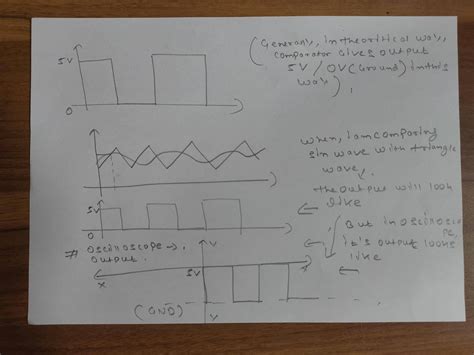 5V
0
(Generally, in theoritical way,
comparator gives output
5V / 0V (Ground) in this
way).
when, i am comparing
sin wave with triangle
wave,
the output will look
like
5V
0
But in oscilloscope,
it's output looks
like
# oscilloscope →
output.
V
5V
X
(GND)
V